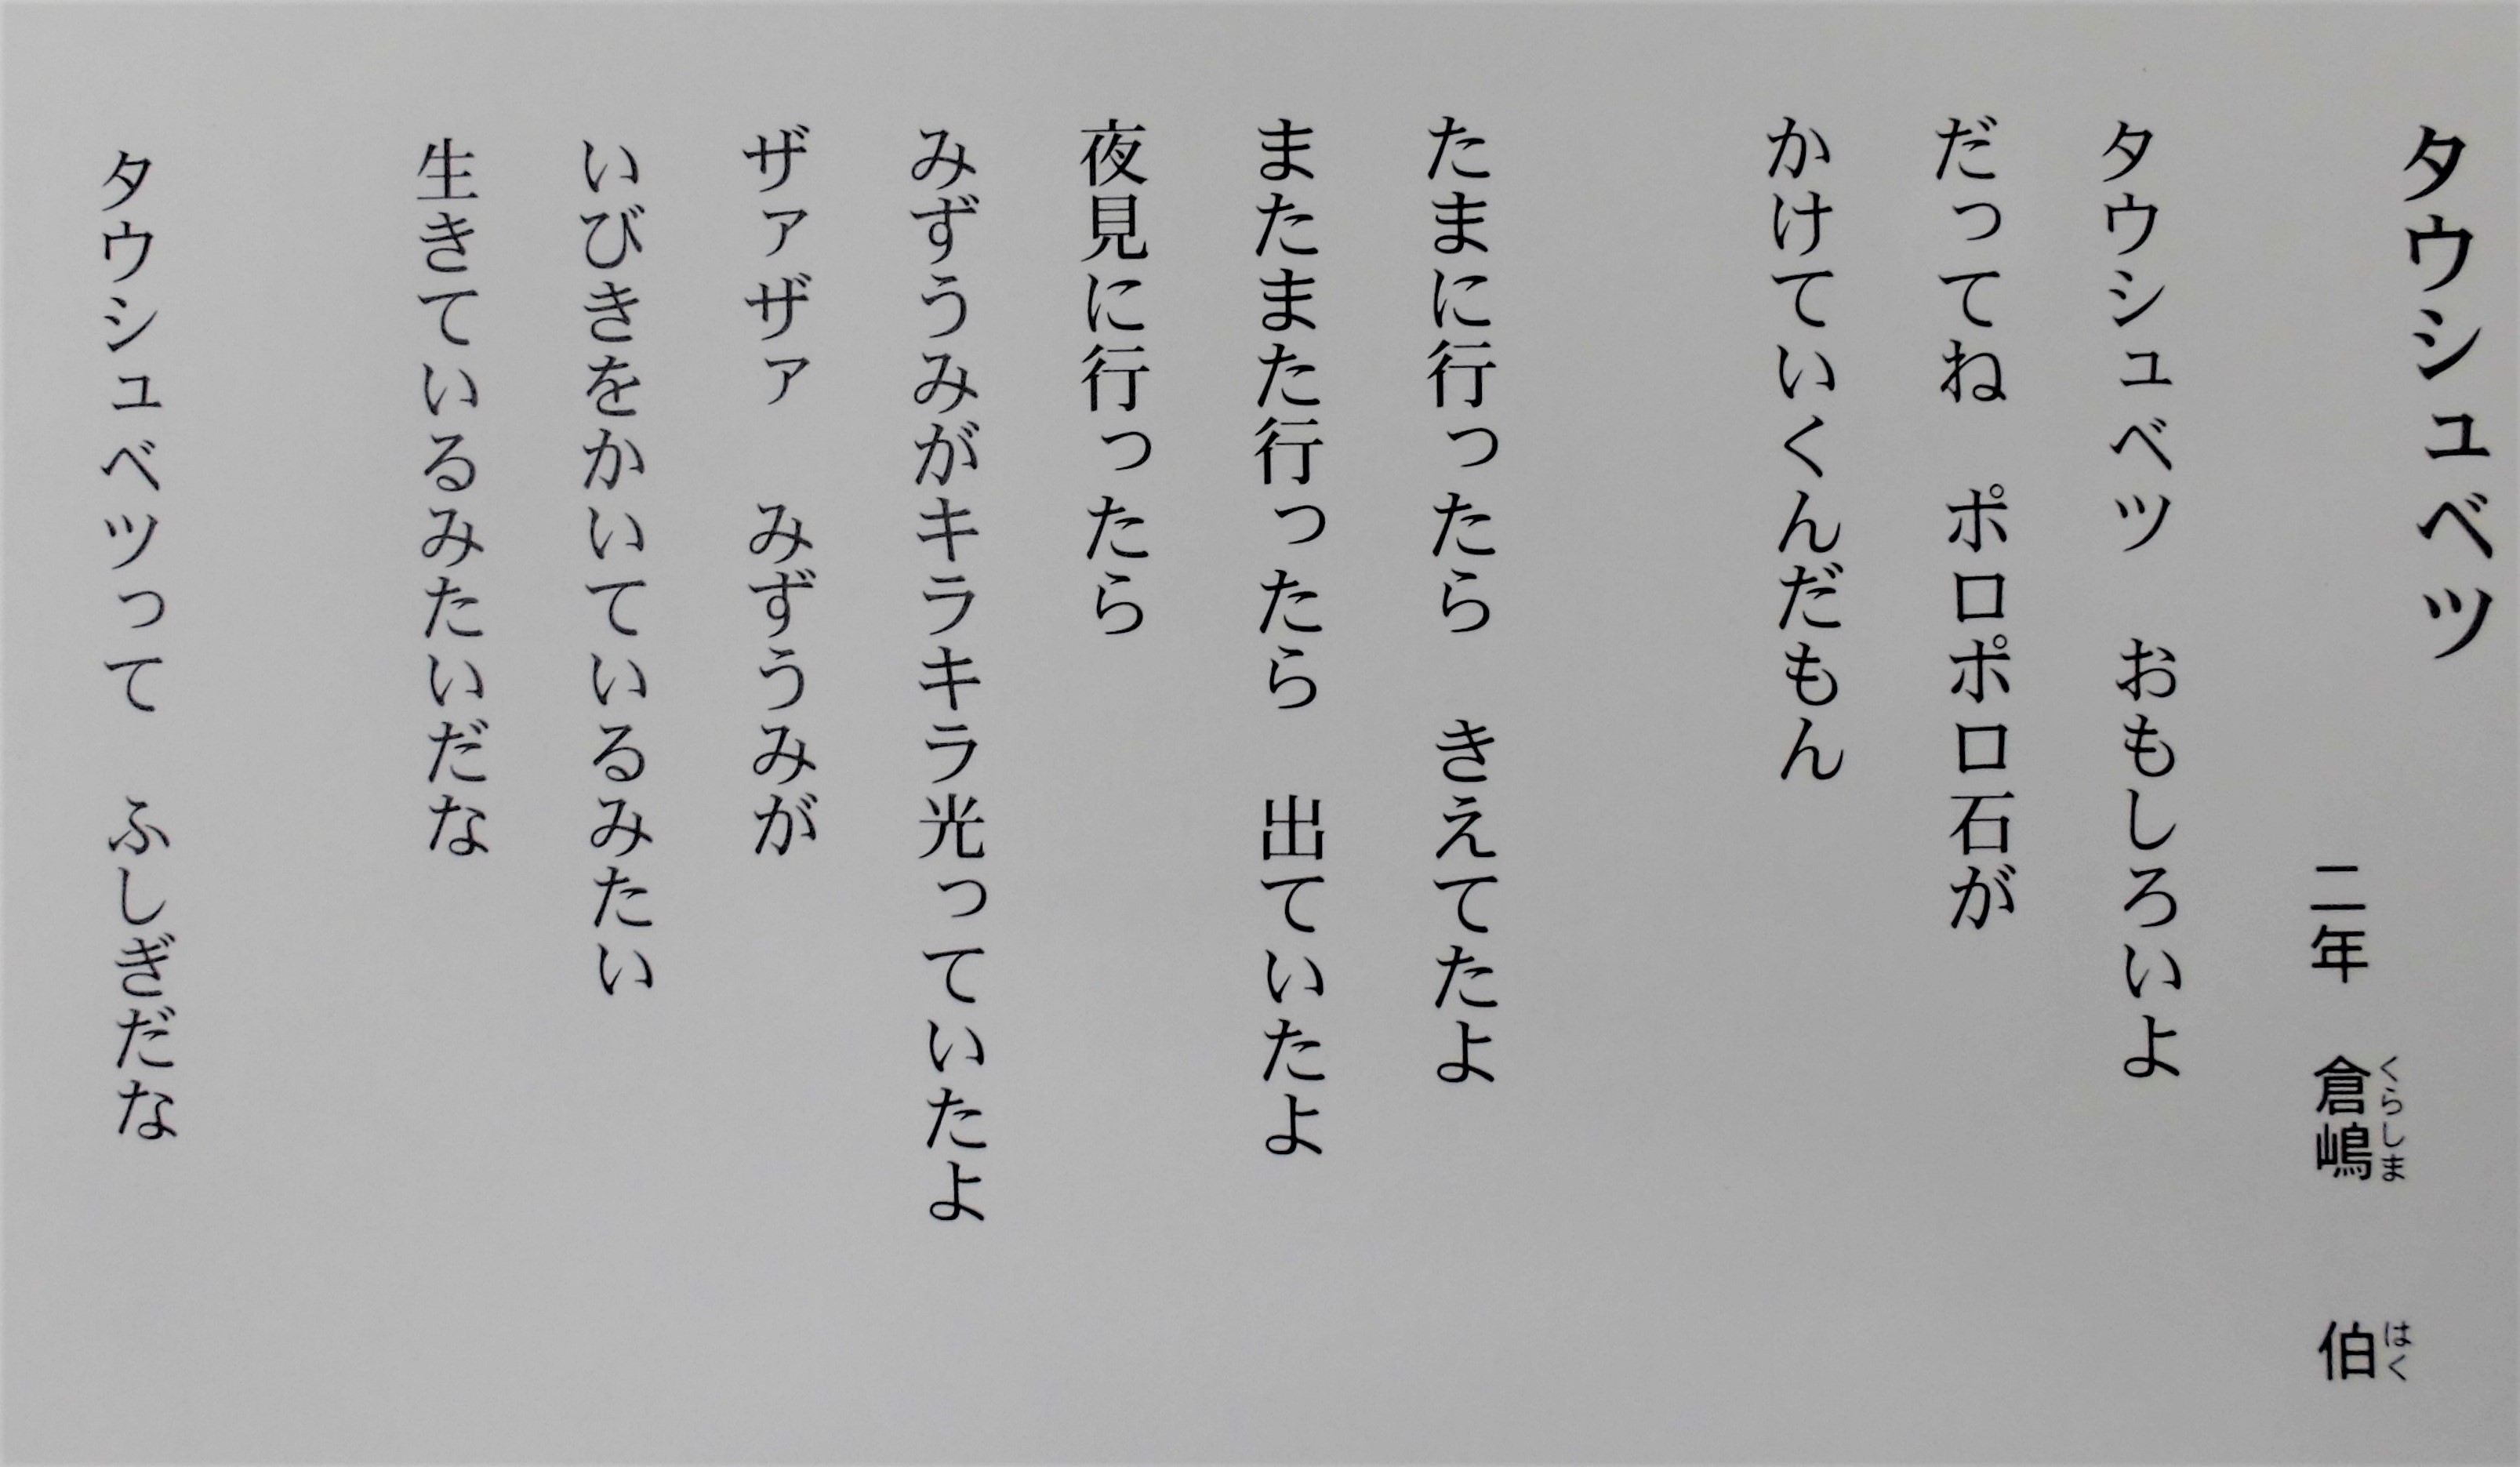 タウシュベツ
二年　倉嶋　伯
くらしま　はく
タウシュベツ　おもしろいよ
だってね　ポロポロ石が
かけていくんだもん
たまに行ったら　きえてたよ
またまた行ったら　出ていたよ
夜見に行ったら
みずうみがキラキラ光っていたよ
ザァザァ　みずうみが
いびきをかいているみたい
生きているみたいだな
タウシュベツって　ふしぎだな